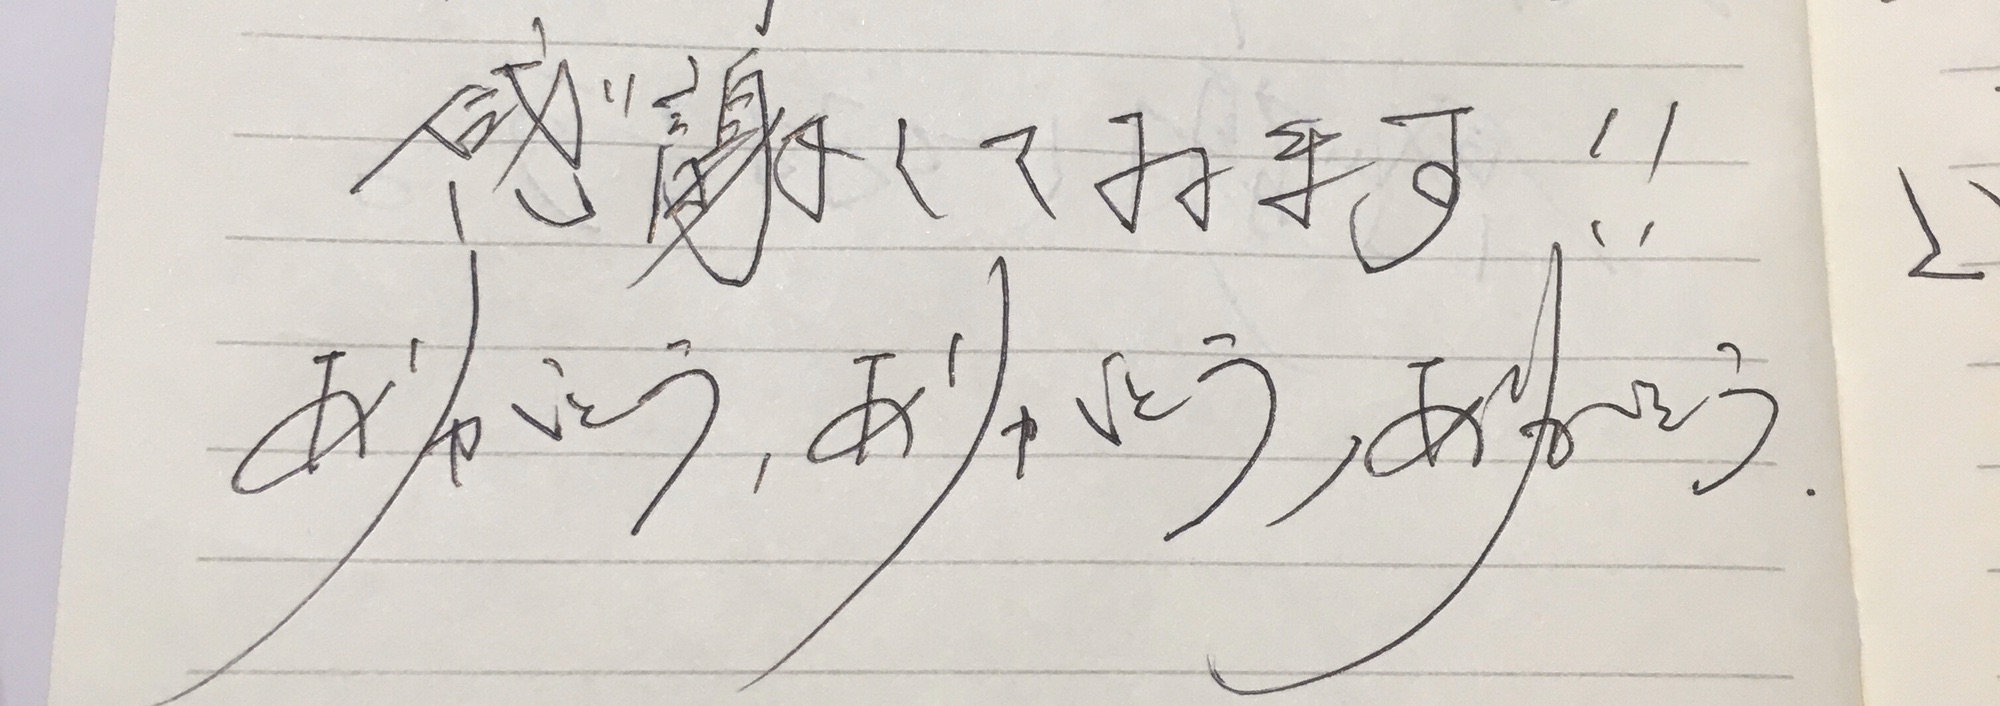 感謝しております!!
ありがとう, ありがとう, ありがとう.